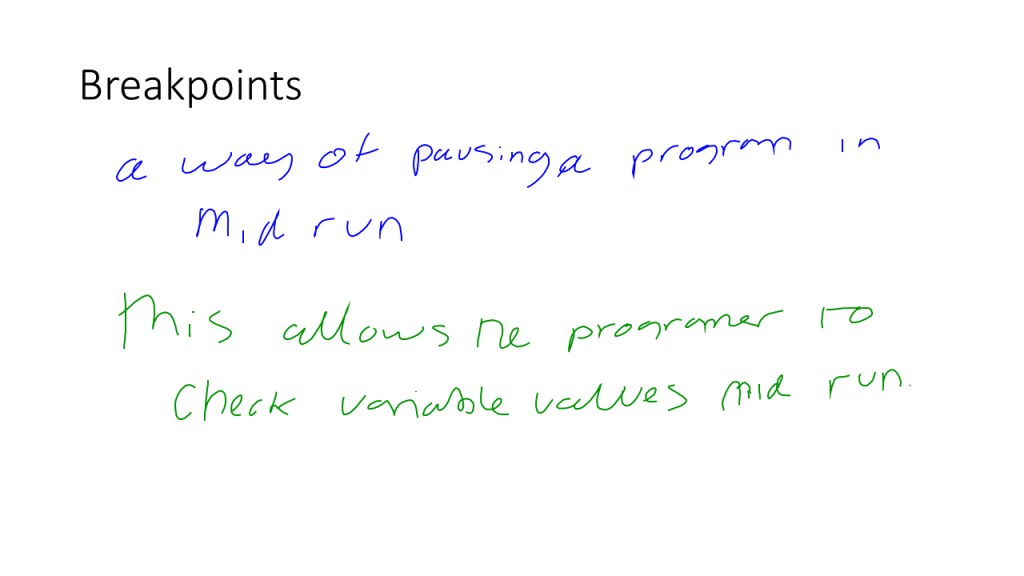 Breakpoints
a way of pausing a program in
mid run
this allows the programer to
check variable values mid run.